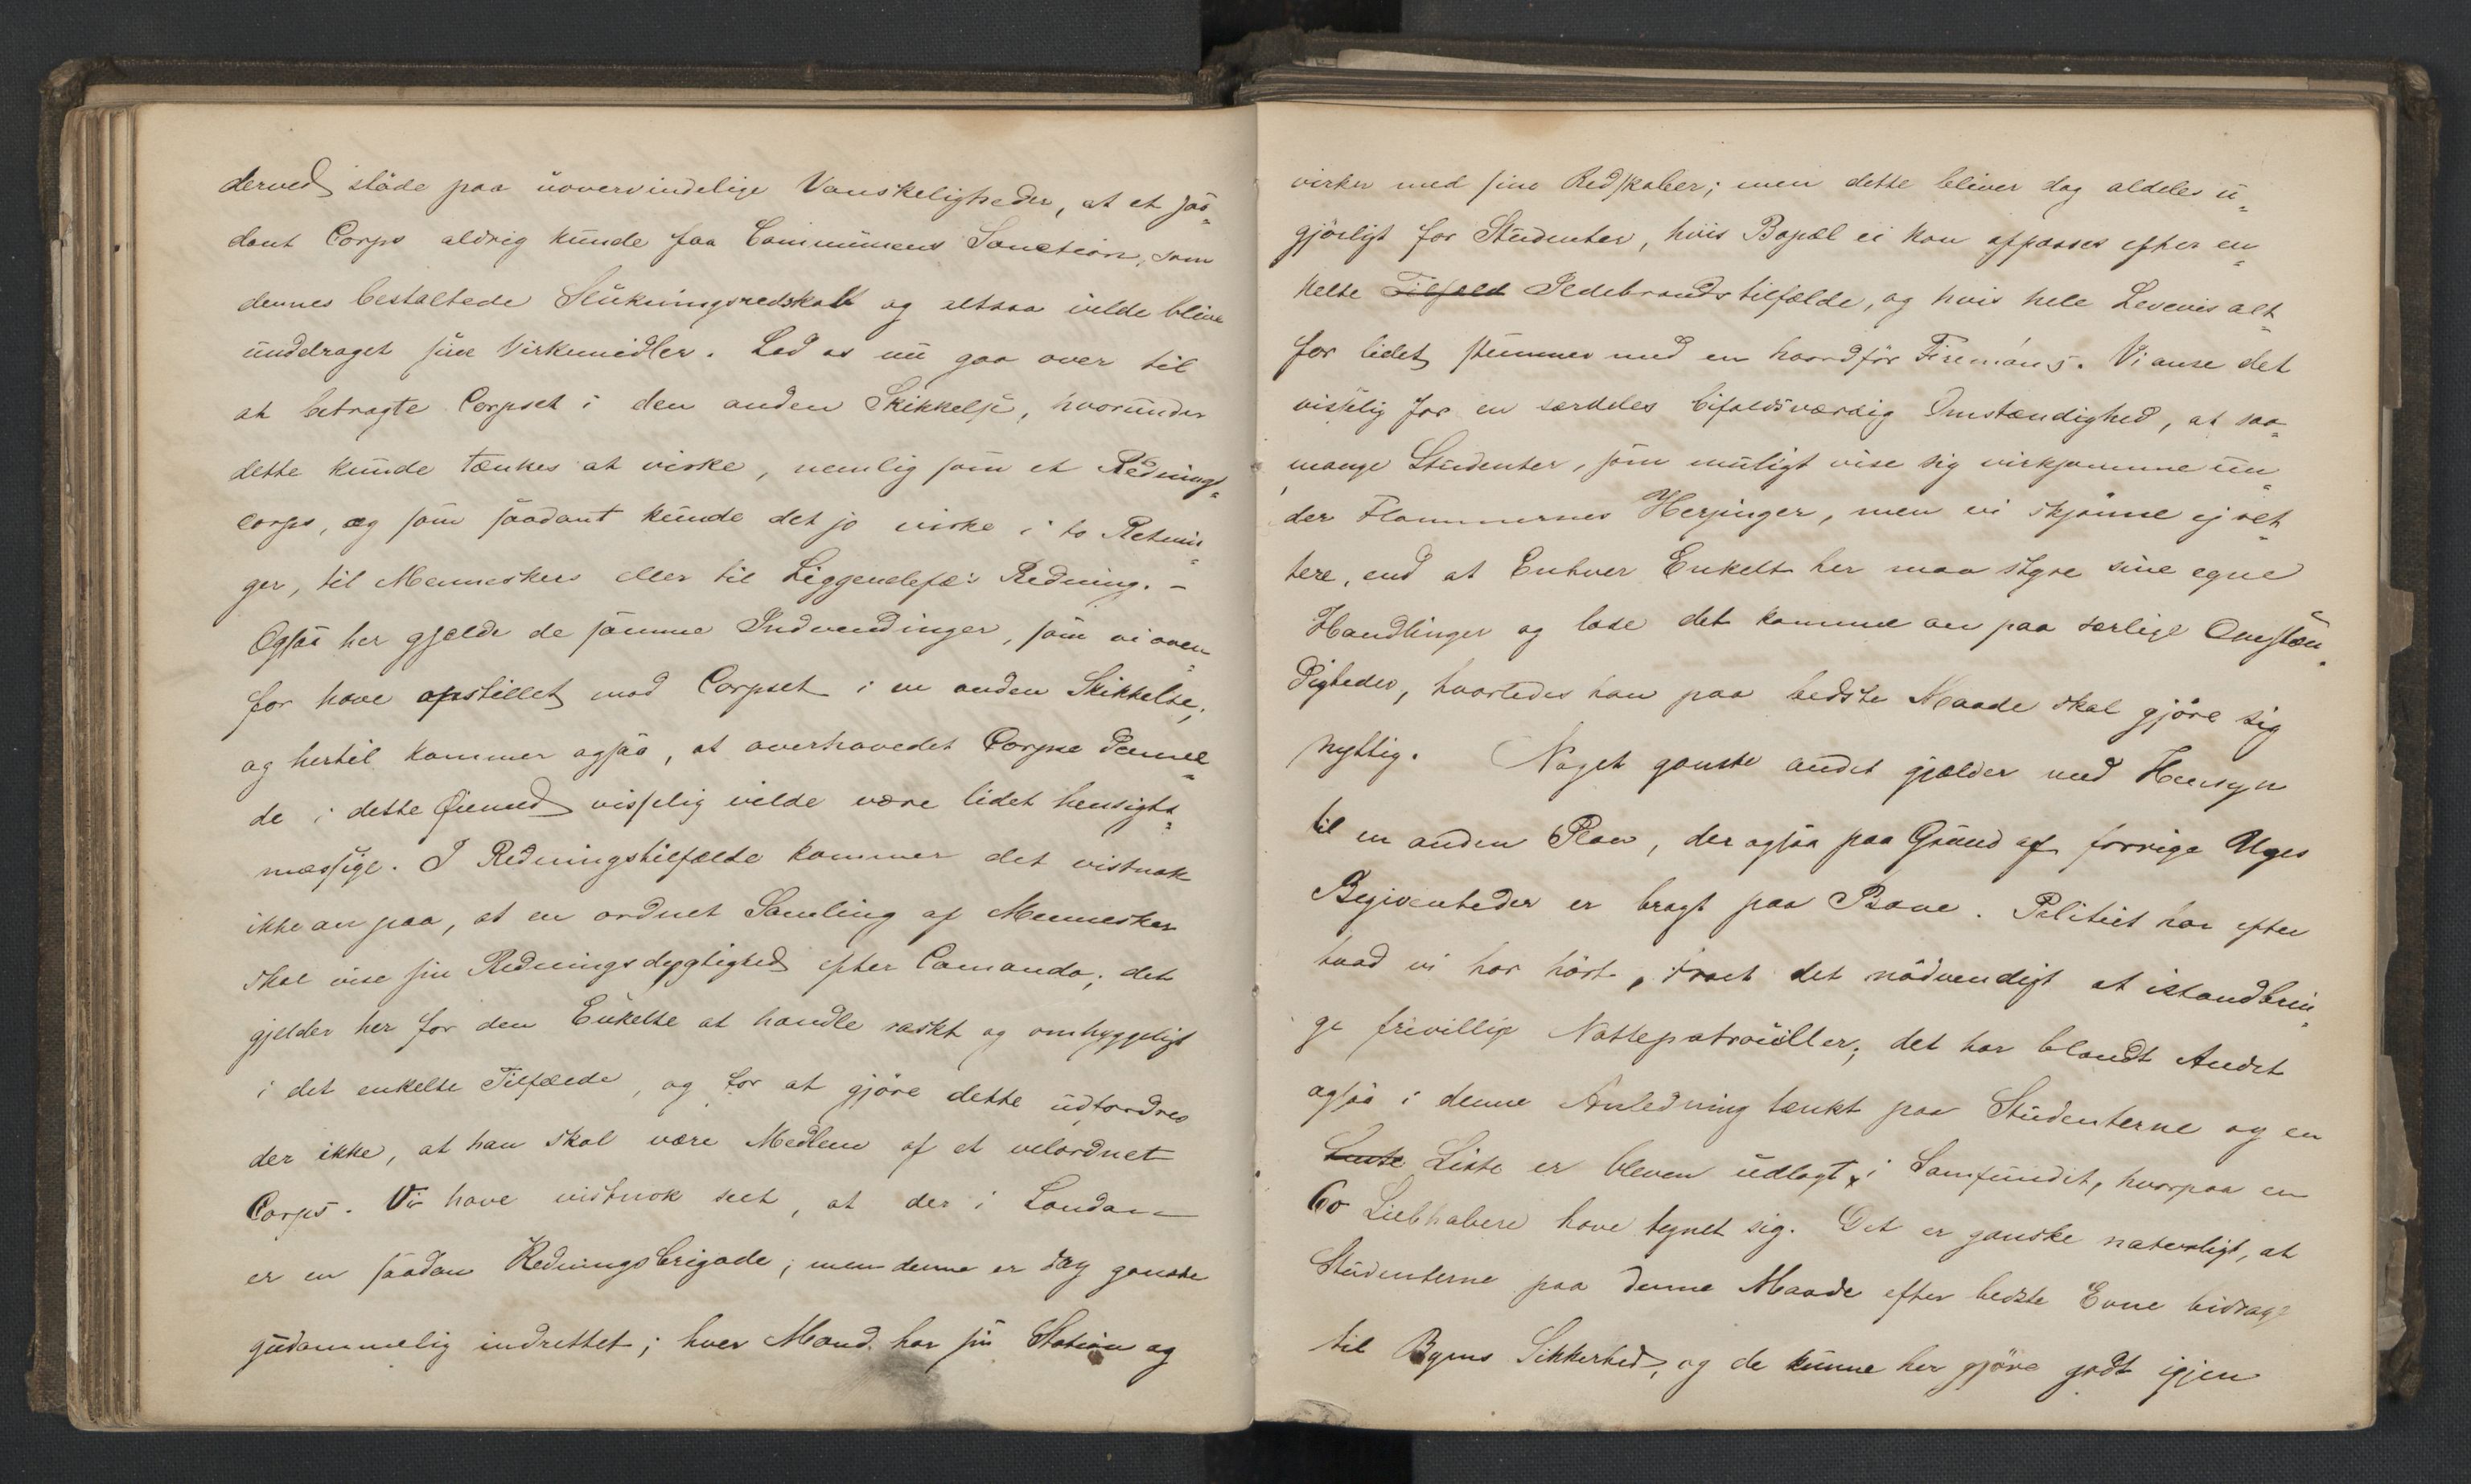 derved støde paa uovervindelige Vanskeligheder, at et saa=
dant Corps aldrig kunde faa Communens Sanction, som
dennes bestaltede Slukningsredskab og altsaa vilde blive
unddraget sine Virkemidler. Lad os nu gaa over til
at betragte Corpset i den anden Skikkelse, hvorunder
dette kunde tænkes at virke, nemlig som et Rednings=
corps, og som saadant kunde det jo virke i to Retnin=
ger, til Menneskers eller til Liggendefæ's Redning. –
Ogsaa her gjælde de samme Indvendinger, som vi oven=
for have opstillet mod Corpset i en anden Skikkelse;
og hertil kommer ogsaa, at overhovedet Corpse
de i dette Øiemed visselig vilde være lidet hensigts=
mæssige. I Redningstilfælde kommer det vistnok
ikke an paa, at en ordnet Samling af Mennesker
skal vise sin Redningsdygtighed efter Comando; det
gjelder her for den Enkelte at handle raskt og omhyggeligt
i det enkelte Tilfælde, og for at gjøre dette udfordres
der ikke, at han skal være Medlem af et velordnet
Corps. Vi have vistnok seet, at der i London
er en saadan Redningsbrigade; men denne er dog ganske
gudommelig indrettet; hver Mand har sin Station og
virker med sine Redskaber; men dette bliver dog aldeles u=
gjørligt for Studenter, hvis Bopæl ei kan afpasses efter en=
kelte Tilfæld Ildebrandstilfælde, og hvis hele Levevis alt=
for lidet stemmer med en haardfør Firemans. Vi anse det
visselig for en særdeles bifaldsværdig Omstændighed, at saa=
mange Studenter, som muligt vise sig virksomme un=
der Flammernes Herjinger, men vi skjønne ej ret=
tere, end at Enhver Enkelt her maa styre sine egne
Handlinger og lade det komme an paa særlige Omstæn=
digheder, hvorledes han paa bedste Maade skal gjøre sig
nyttig. Noget ganske andet gjælder med Hensyn
til en anden Plan, der ogsaa paa Grund af forrige Uges
Begivenheder er bragt paa Bane. Politiet har efter
hvad vi har hørt, troet det nødvendigt at istandbrin=
ge frivillige Nattepatrouiller; det har blandt Andet
ogsaa i denne Anledning tænkt paa Studenterne og en
Liste er bleven udlagt i Samfundet, hvorpaa en
60 Liebhabere have tegnet sig. Det er ganske naturligt, at
Studenterne paa denne Maade efter bedste Evne bidrage
til Byens Sikkerhed, og de kunne her gjøre godt igjen